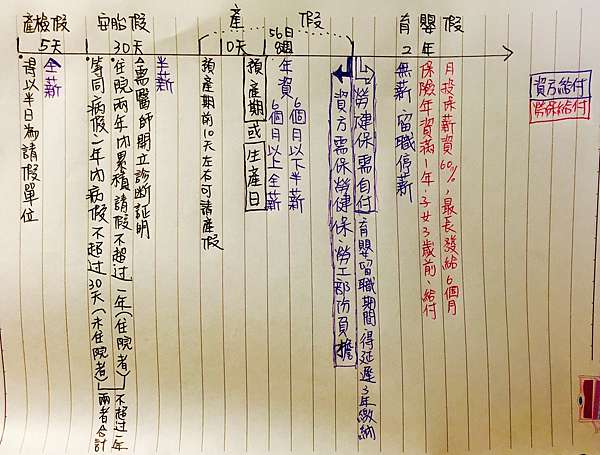 產檢假
5天
安胎假
30天
產假
10天
56日
8週
育嬰假
2年
全薪
得以半日為請假單位
半薪
需醫師開立診斷証明
住院兩年內累積請假不超过一年(住院者)
等同病假一年內病假不超过30天(未住院者)
不超过一年
兩者合計
預產期前10天左右可請產假
預產期或生產日
年資
6個月以下半薪
6個月以上全薪
勞健保需自付
育嬰留職期間,得延遲3年繳納
資方需保勞健保,勞工部份負擔
無薪、留職停薪
月投保薪資60%,最長發給6個月
保險年資滿1年、子女3歲前、給付
資方給付
勞保給付